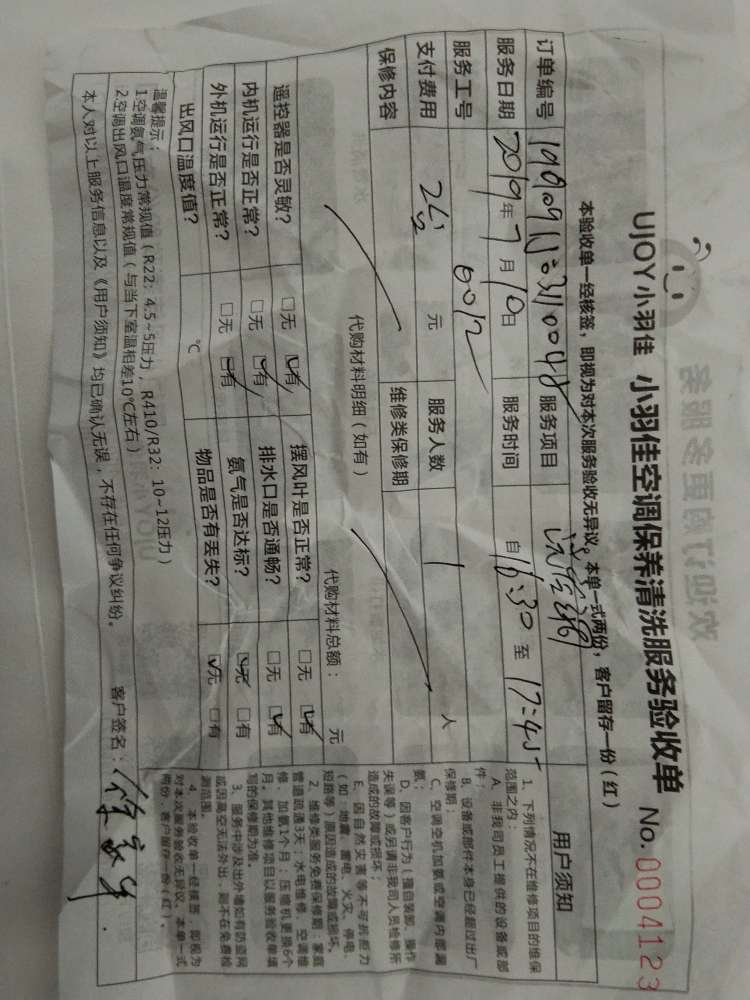 UJOY小羽佳 小羽佳空调保养清洗服务验收单 No.0004123
本验收单一经核签，即视为对本次服务验收无异议。本单一式两份，客户留存一份（红）
订单编号 服务项目
服务日期 2019年7月10日 服务时间 自16:30至17:45
服务工号 6012
支付费用 元 服务人数 1 人
保修内容 维修类保修期
代购材料明细（如有） 代购材料总额： 元
遥控器是否灵敏？ □无 ☑有 摆风叶是否正常？ □无 ☑有
内机运行是否正常？ □无 ☑有 排水口是否通畅？ □无 ☑有
外机运行是否正常？ □无 ☑有 氨气是否达标？ ☑无 □有
出风口温度值？ ℃ 物品是否有丢失？ ☑无 □有
温馨提示：
1.空调氨气压力常规值（R22：4.5~5压力，R410/R32：10~12压力）
2.空调出风口温度常规值（与当下室温相差10℃左右）
本人对以上服务信息以及《用户须知》均已确认无误，不存在任何争议纠纷。 客户签名：
用户须知
1、下列情况不在维修项目的维保
范围之内：
A、非我司员工提供的设备或部
件；
B、设备或部件本身已经超过出厂
保修期；
C、空调空机加氨或空调内部漏
氨；
D、因客户行为（擅自装卸、操作
失误等）或另请非我司人员检修所
造成的故障或损坏；
E、因自然灾害等不可抗拒力
（如：地震、雷电、火灾、停电、
短路等）原因造成的故障或损坏。
2、维修类服务免费保修期：家庭
管道疏通3天；水电维修、空调维
修、加氨1个月；压缩机更换6个
月，其他维修项目以服务验收单填
写的保修期为准。
3、服务中涉及出外墙如有防盗网
或因高空无法外出，则不在免费检
测范围。
4、本验收单一经核签，即视为
对本次服务验收无异议。本单一式
两份，客户留存一份（红）。